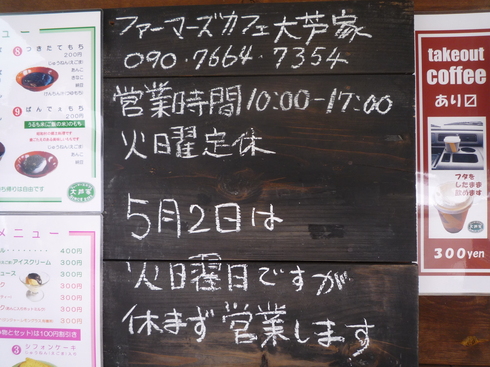 ファーマーズカフェ大芦家
090・7664・7354
営業時間10:00-17:00
火曜定休
5月2日は
火曜日ですが
休まず営業します
ュー
8 つきたてもち
200円
じゅうねん(えごま)
あんこ
きなこ
納豆
9 ばんでぇもち
200円
うるち米(ご飯の米)のもち
あんこ
納豆
大芦家
メニュー
400円
アイスクリーム 400円
300円
300円
300円
300円
300円
セット)は100円割引き
3 シフォンケーキ
takeout
coffee
あり〼
フタを
したまま
飲めます
300yen